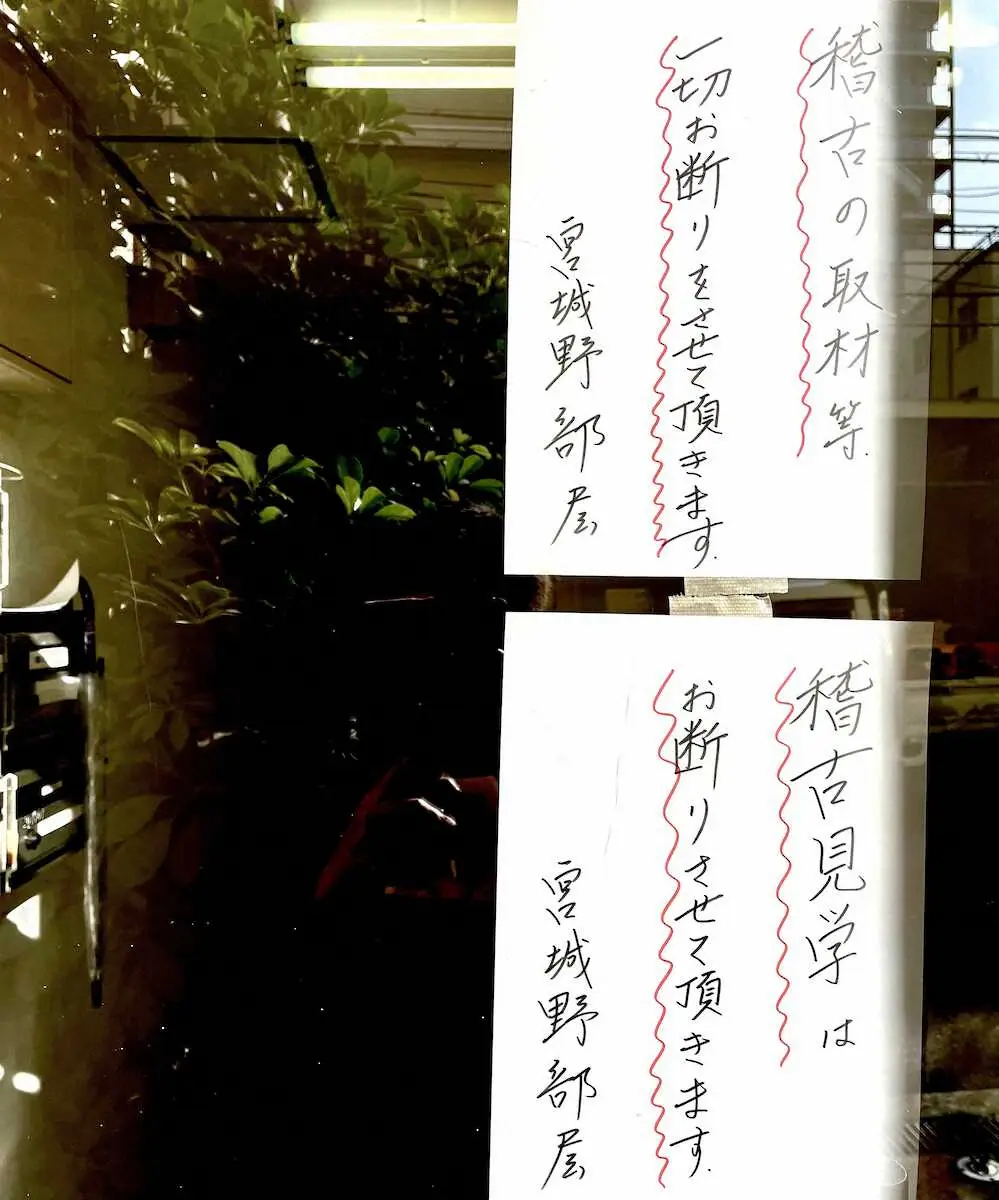 稽古の取材等
一切お断りをさせて頂きます.
宮城野部屋
稽古見学は
お断りさせて頂きます.
宮城野部屋